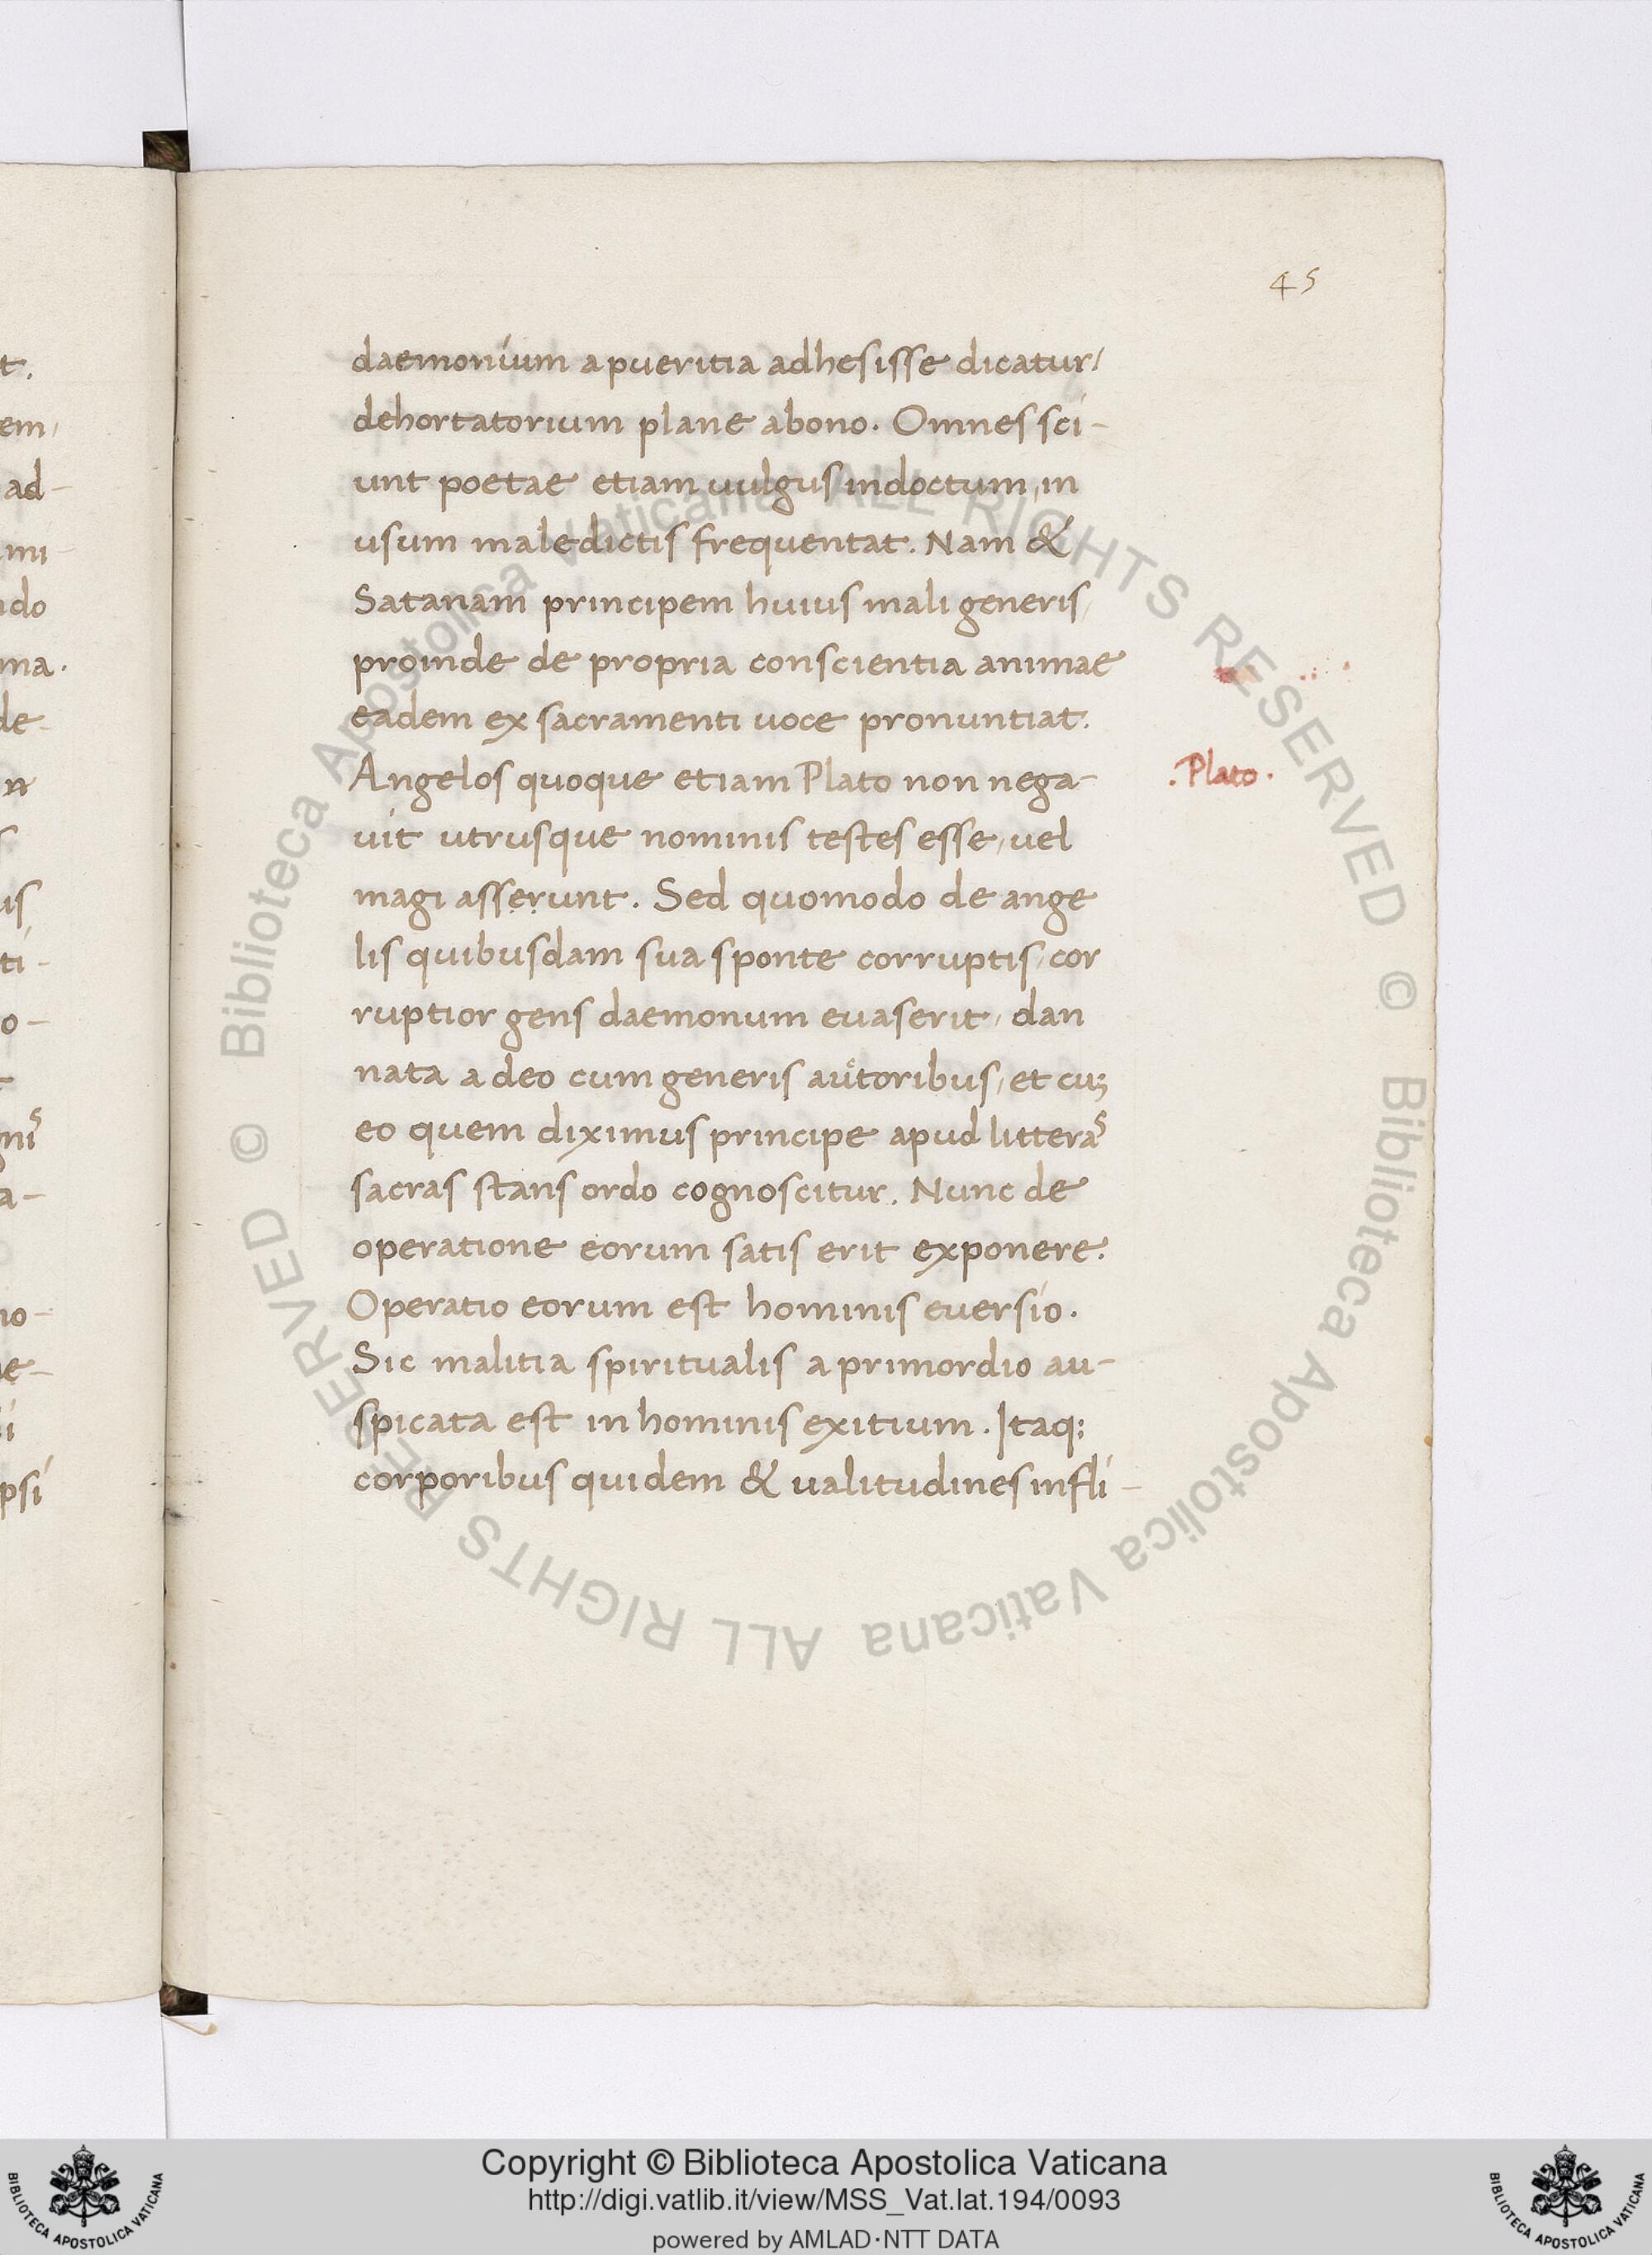 45
daemonium a pueritia adhesisse dicatur/
dehortatorium plane abono. Omnes sci-
unt poetae etiam uulgus indoctum, in
usum maledictis frequentat. Nam &
Satanam principem huius mali generis,
proinde de propria conscientia animae
eadem ex sacramenti uoce pronuntiat.
Angelos quoque etiam Plato non nega-
.Plato.
uit utrusque nominis testes esse, uel
magi asserunt. Sed quomodo de ange
lis quibusdam sua sponte corruptis, cor
ruptior gens daemonum euaserit, dan
nata a deo cum generis autoribus, et cuȝ
eo quem diximus principe apud litteras
sacras stans ordo cognoscitur. Nunc de
operatione eorum satis erit exponere.
Operatio eorum est hominis euersio.
Sic malitia spiritualis a primordio au-
spicata est in hominis exitium. Itaq:
corporibus quidem & ualitudines infli-
t.
em,
ad-
mi-
do
ma.
de-
n
s
us
ti-
o-
nis
a-
no-
e-
i
psi
© Biblioteca Apostolica Vaticana ALL RIGHTS RESERVED
© Biblioteca Apostolica Vaticana ALL RIGHTS RESERVED
Copyright © Biblioteca Apostolica Vaticana
http://digi.vatlib.it/view/MSS_Vat.lat.194/0093
powered by AMLAD·NTT DATA
BIBLIOTECA APOSTOLICA VATICANA
BIBLIOTECA APOSTOLICA VATICANA